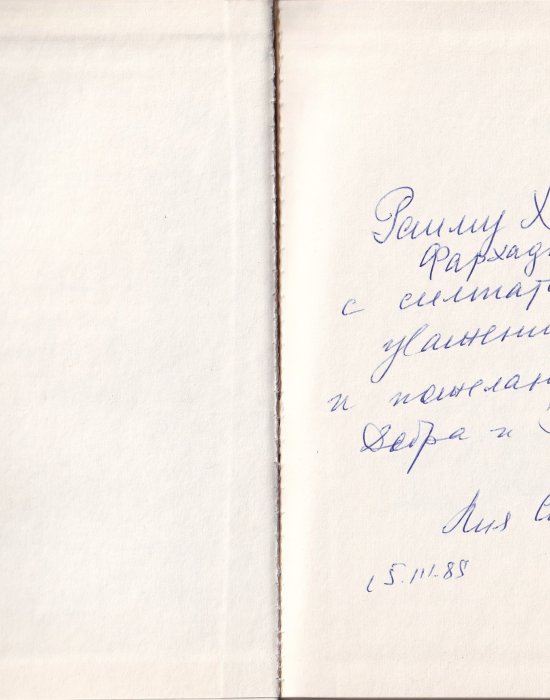 Раиму Х
Фархад
с симпат
уважени
и пожелан
Добра и
Лия С
15.III.89